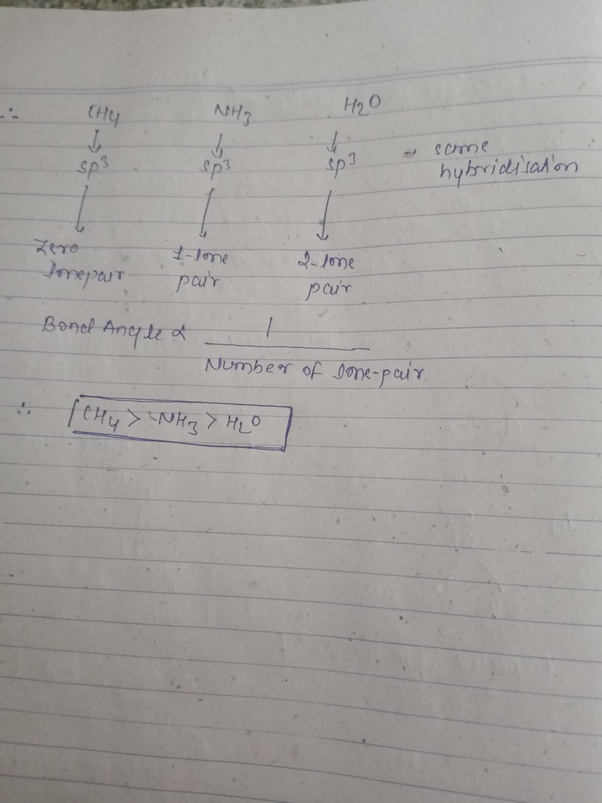 ∴ CH4 NH3 H2O
↓ ↓ ↓
sp³ sp³ sp³ → same
hybridisation
↓ ↓ ↓
Zero 1-lone 2-lone
lonepair pair pair
Bond Angle ∝ 1
Number of lone-pair
∴ CH4 > NH3 > H2O